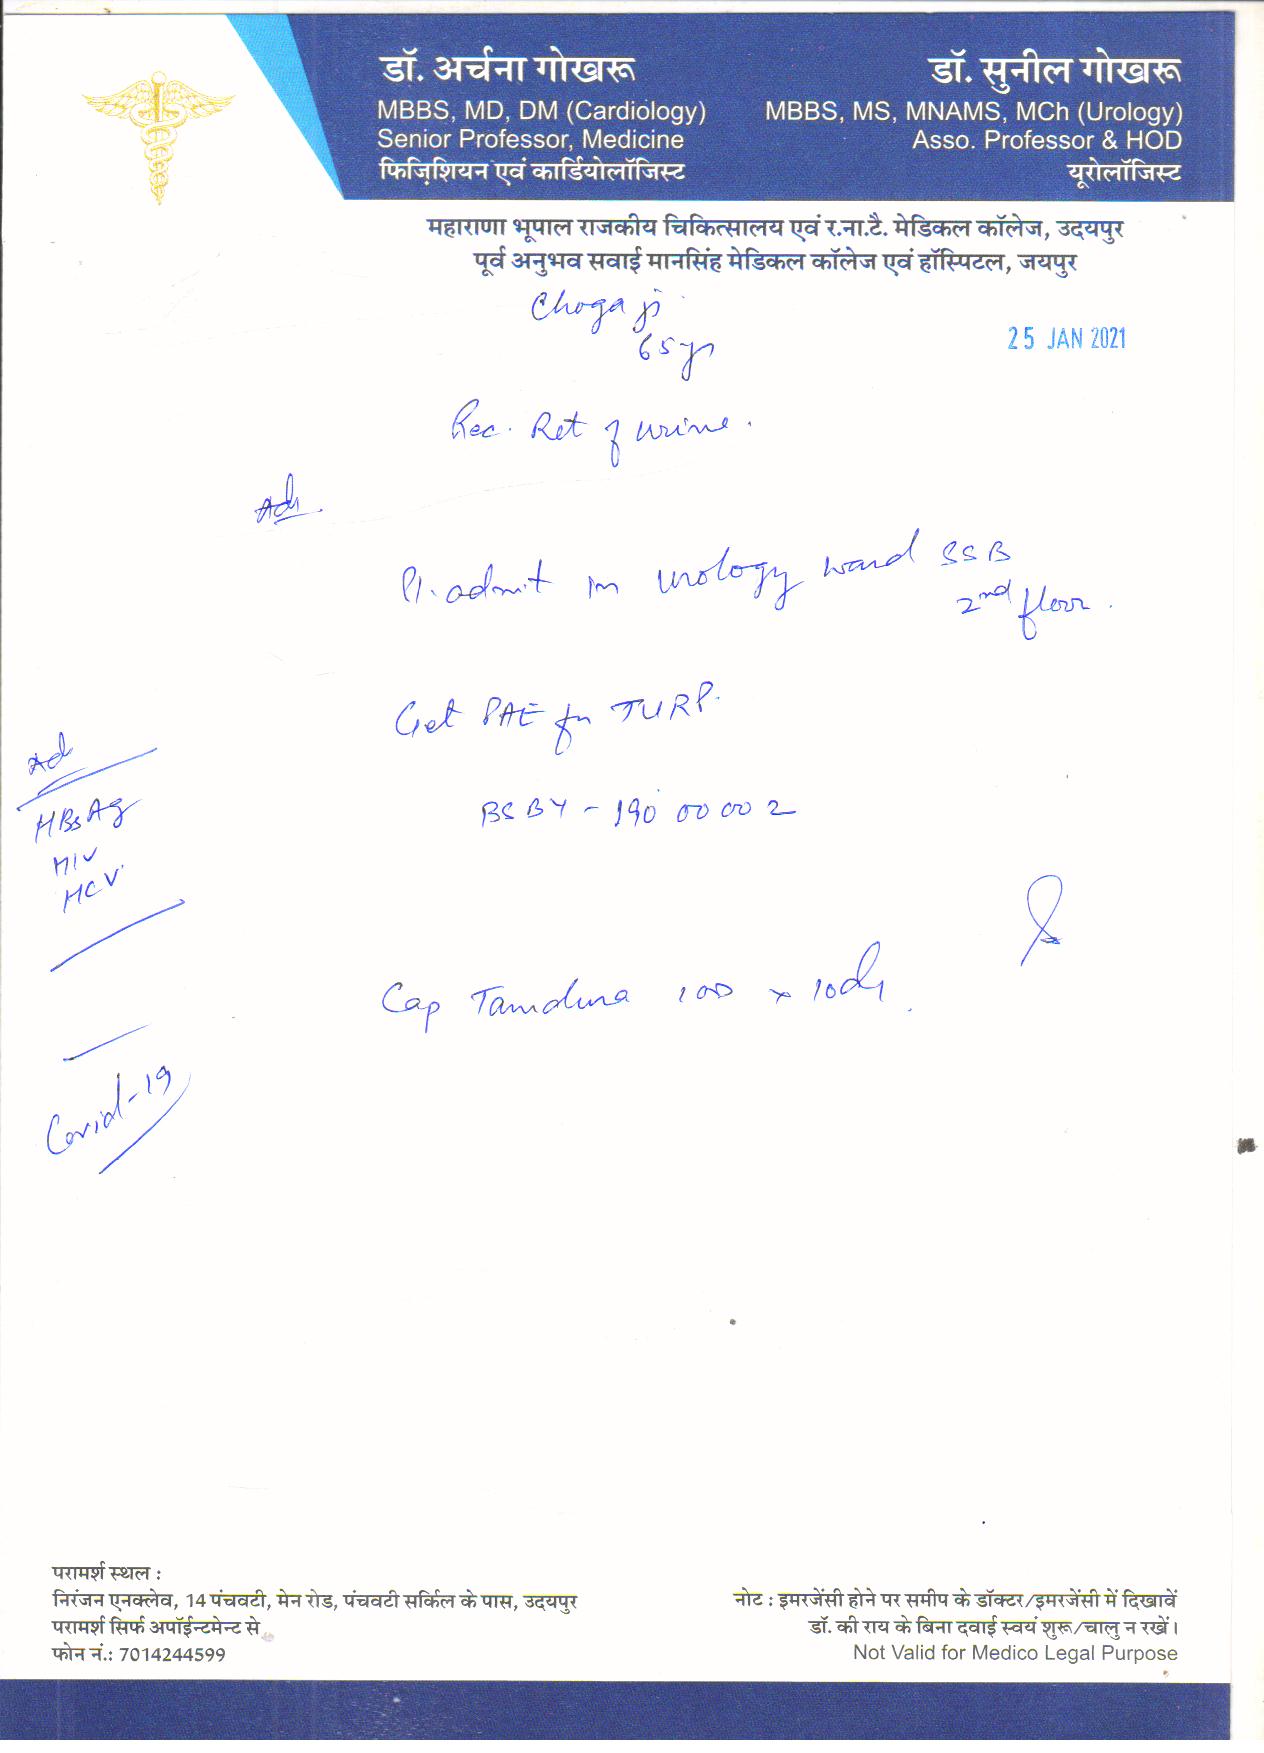 डॉ. अर्चना गोखरू
MBBS, MD, DM (Cardiology)
Senior Professor, Medicine
फिज़िशियन एवं कार्डियोलॉजिस्ट
डॉ. सुनील गोखरू
MBBS, MS, MNAMS, MCh (Urology)
Asso. Professor & HOD
यूरोलॉजिस्ट
महाराणा भूपाल राजकीय चिकित्सालय एवं र.ना.टै. मेडिकल कॉलेज, उदयपुर
पूर्व अनुभव सवाई मानसिंह मेडिकल कॉलेज एवं हॉस्पिटल, जयपुर
Choga ji
65 yr
25 JAN 2021
Rec. Ret of urine.
Adv.
Pl. admit in urology ward SSB
2nd floor.
Get PAE for TURP.
BSBY - 190 00 00 2
Ad
HBsAg
HIV
HCV
Cap 100 x 10d
Covid-19
परामर्श स्थल :
निरंजन एनक्लेव, 14 पंचवटी, मेन रोड, पंचवटी सर्किल के पास, उदयपुर
परामर्श सिर्फ अपॉईन्टमेन्ट से
फोन नं.: 7014244599
नोट : इमरजेंसी होने पर समीप के डॉक्टर/इमरजेंसी में दिखावें
डॉ. की राय के बिना दवाई स्वयं शुरू/चालु न रखें।
Not Valid for Medico Legal Purpose